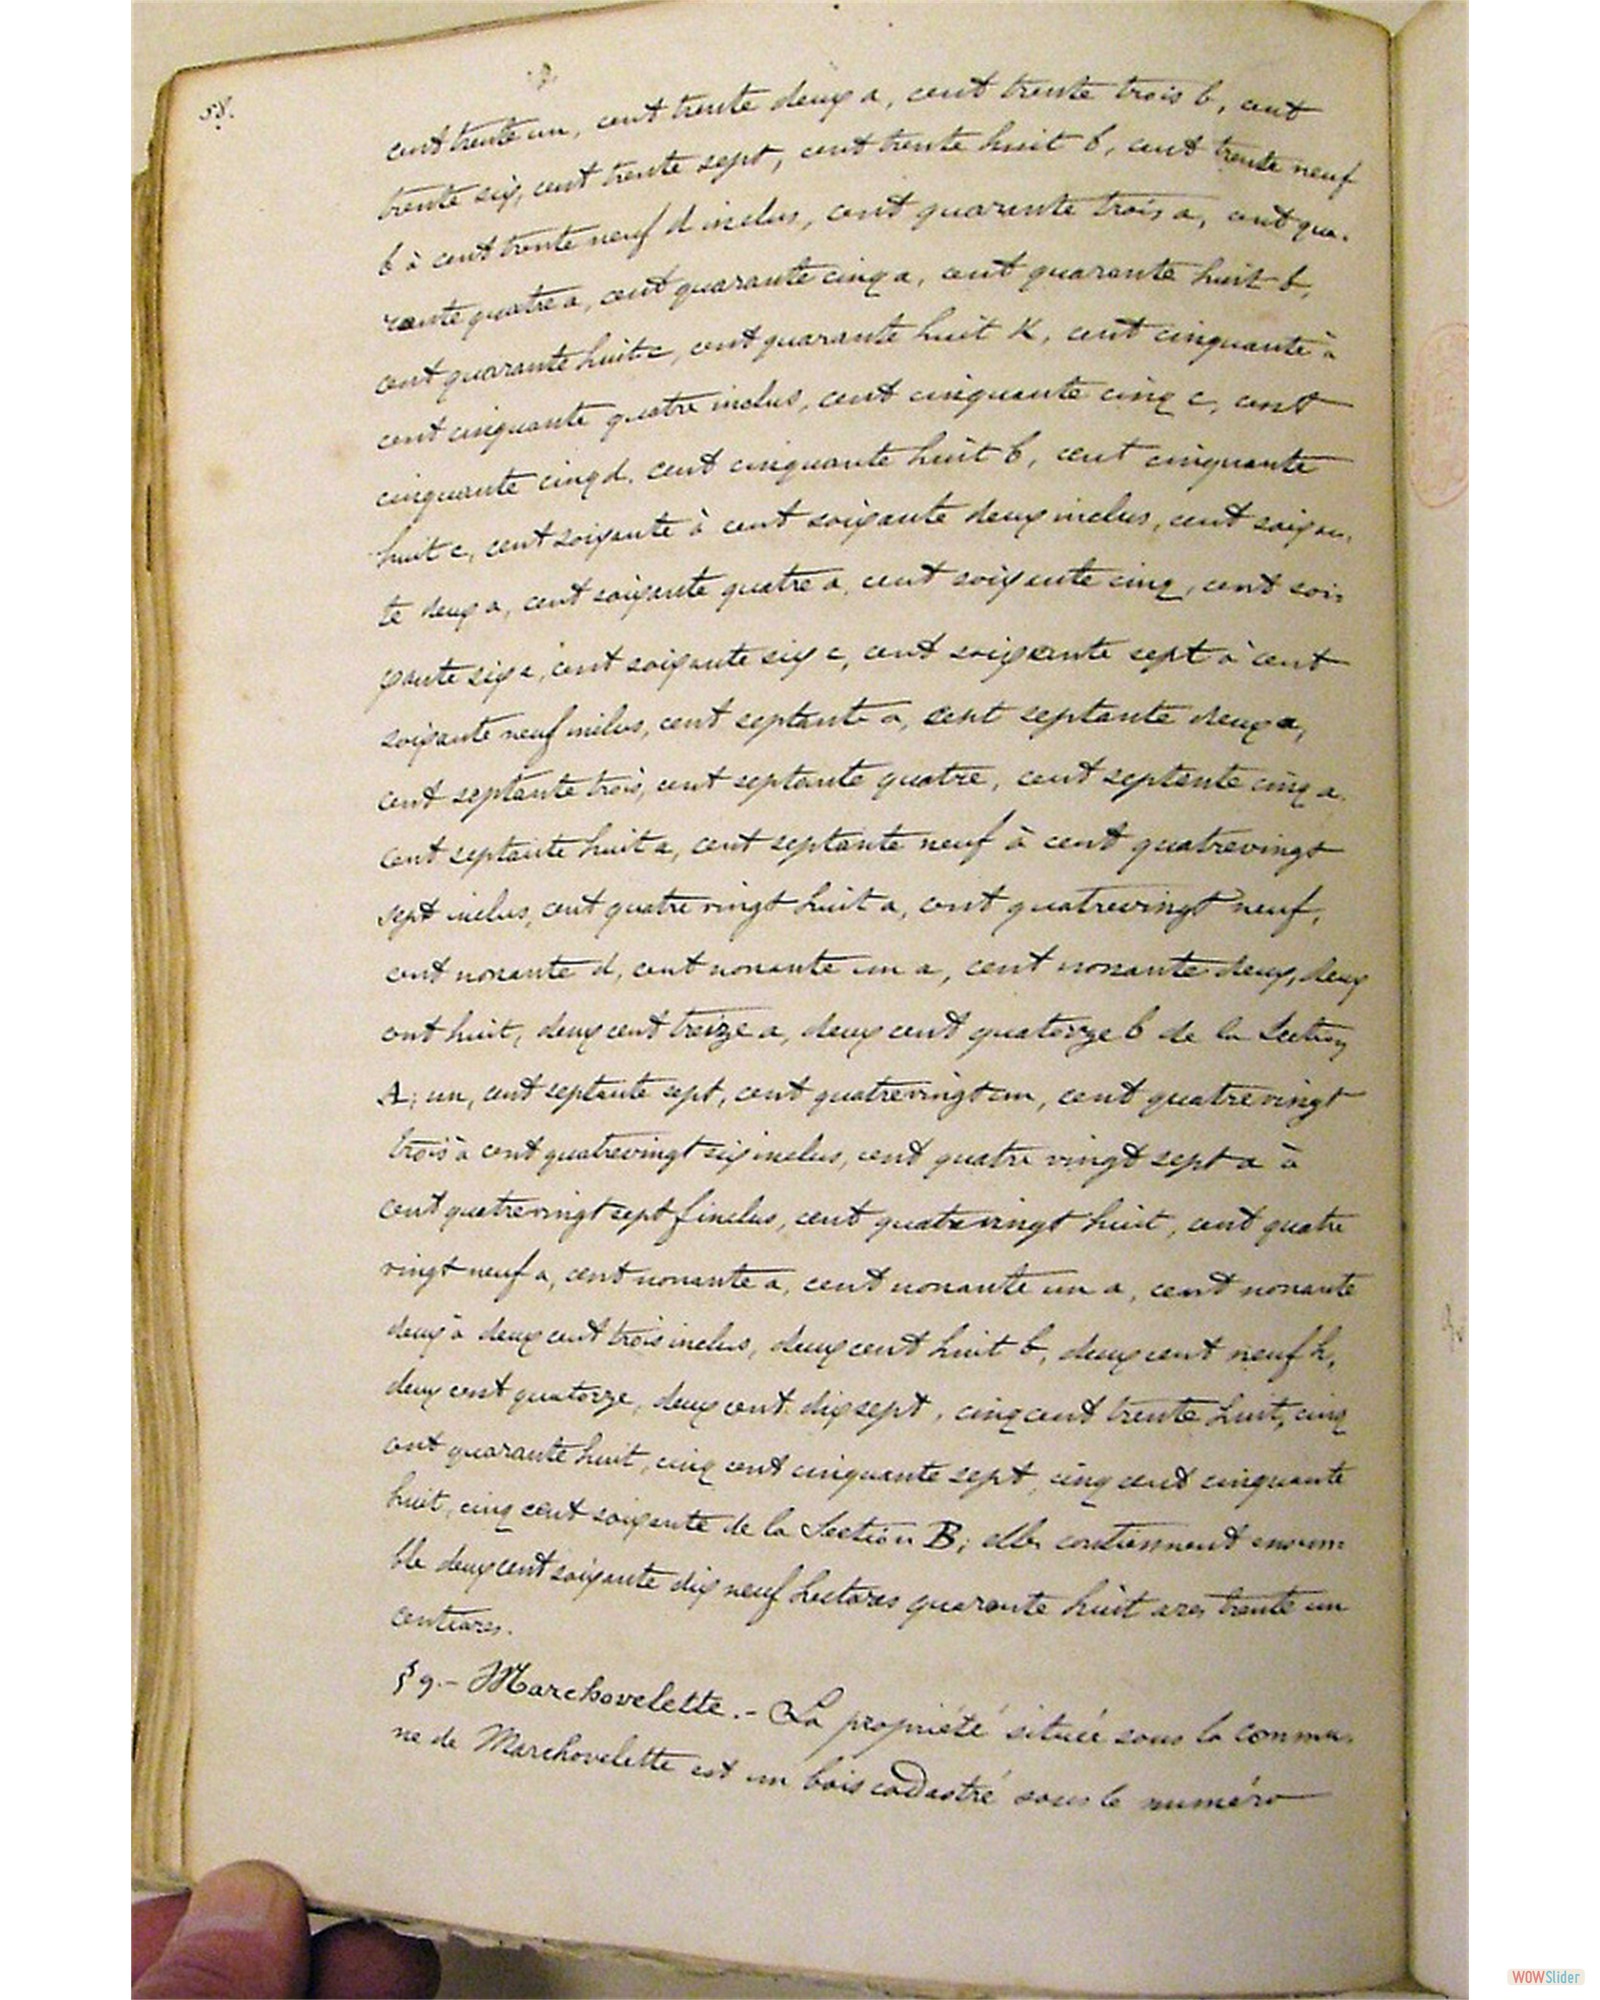 58.
cent trente un, cent trente deux a, cent trente trois b, cent
trente six, cent trente sept, cent trente huit b, cent trente neuf
b à cent trente neuf d inclus, cent quarante trois a, cent qua-
rante quatre a, cent quarante cinq a, cent quarante huit b,
cent quarante huit c, cent quarante huit K, cent cinquante à
cent cinquante quatre inclus, cent cinquante cinq c, cent
cinquante cinq d. cent cinquante huit b, cent cinquante
huit c, cent soixante à cent soixante deux inclus, cent soixan-
te deux a, cent soixante quatre a, cent soixante cinq, cent soi-
xante six a, cent soixante six c, cent soixante sept à cent
soixante neuf inclus, cent septante a, cent septante deux a,
cent septante trois, cent septante quatre, cent septante cinq a.
cent septante huit a, cent septante neuf à cent quatrevingt
sept inclus, cent quatre vingt huit a, cent quatrevingt neuf,
cent nonante d, cent nonante un a, cent nonante deux, deux
cent huit, deux cent treize a, deux cent quatorze b de la Section
A; un, cent septante sept, cent quatrevingt un, cent quatrevingt
trois à cent quatrevingt six inclus, cent quatre vingt sept a à
cent quatrevingt sept f inclus, cent quatrevingt huit, cent quatre
vingt neuf a, cent nonante a, cent nonante un a, cent nonante
deux à deux cent trois inclus, deux cent huit b, deux cent neuf h,
deux cent quatorze, deux cent dix sept, cinq cent trente huit, cinq
cent quarante huit, cinq cent cinquante sept, cinq cent cinquante
huit, cinq cent soixante de la Section B; elles contiennent ensem-
ble deux cent soixante dix neuf hectares quarante huit ares trente un
centiares.
§ 9.- Marchovelette.- La propriété située sous la commu-
ne de Marchovelette est un bois cadastré sous le numéro
WOWSlider